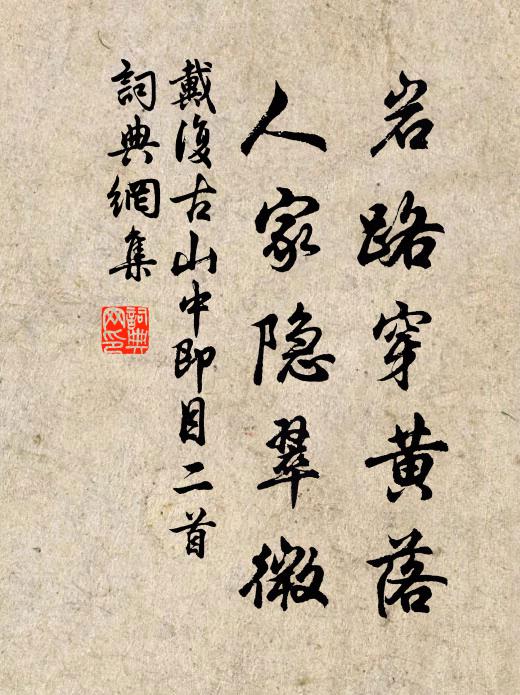 岩路穿黄落
人家隐翠微
戴復古山中即目二首
詞典網集
詞典網印